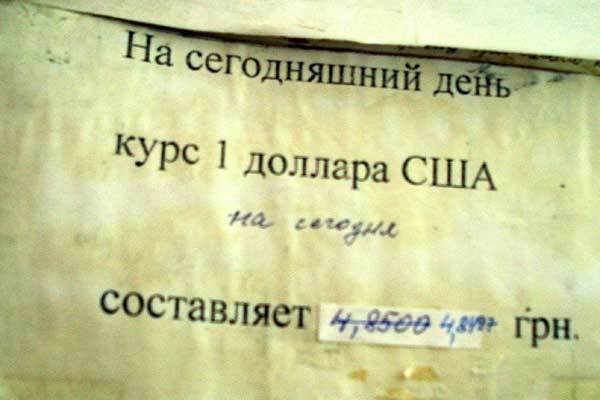 На сегодняшний день
курс 1 доллара США
на сегодня
составляет 4,8500 грн.